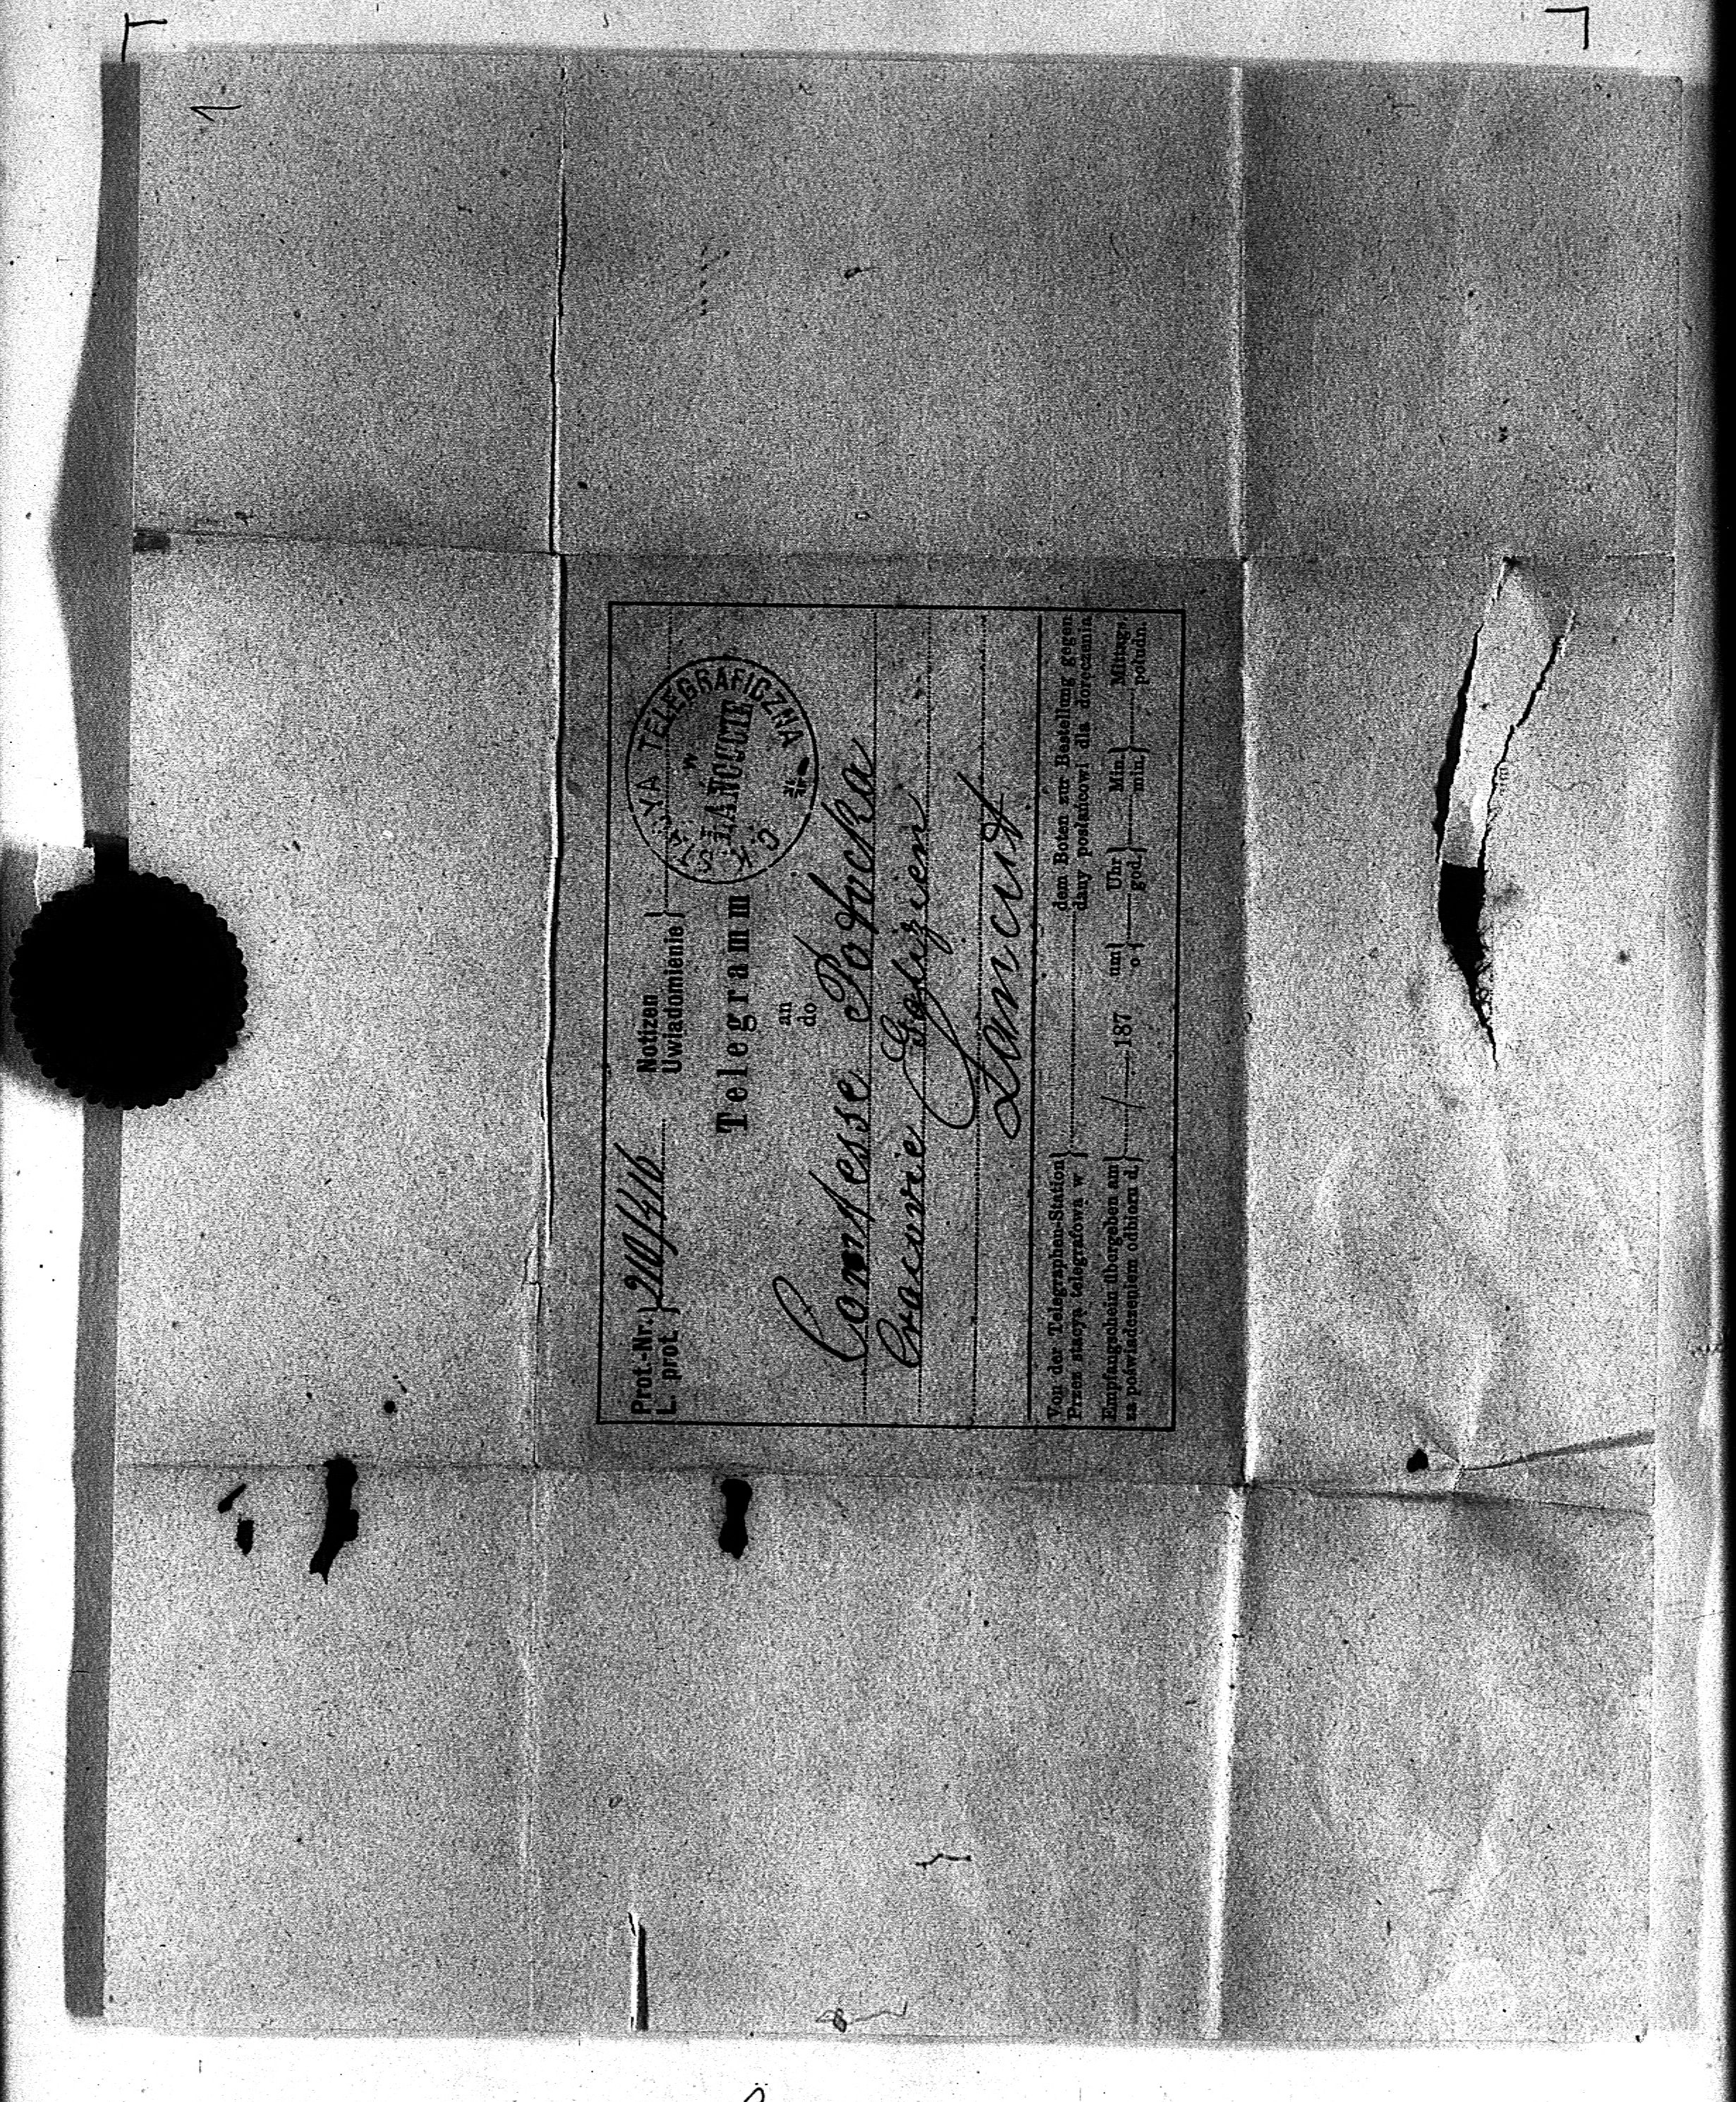 Prot.-Nr. } 210/4/16 Notizen }
L. prot. } Uwiadomienie }
C. K. STACYA TELEGRAFICZNA
w
ŁAŃCUCIE
Telegramm
an
do
Comtesse Potocka
Cracovie Galizien
Lancut
Von der Telegraphen-Station } dem Boten zur Bestellung gegen
Przez stacyę telegrafową w } dany posłańcowi dla doręczenia
Empfangschein übergeben am } / 187 um } Uhr } Min. } Mittags.
za poświadczeniem odbioru d. } o } god. } min. } południ.